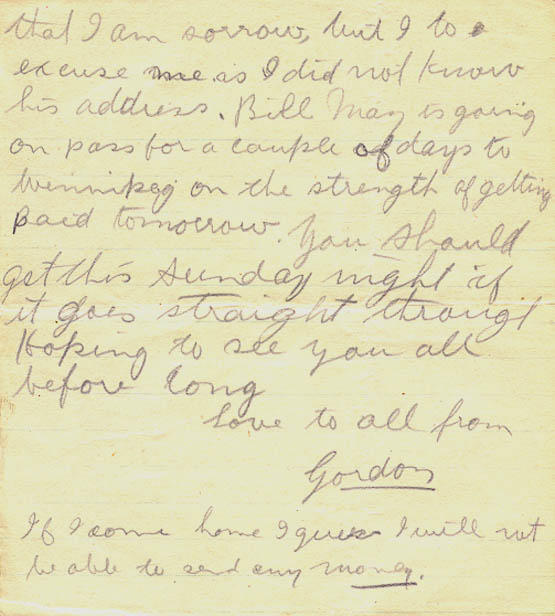 that I am sorrow, but I to
excuse me as I did not know
his address. Bill May is going
on pass for a couple of days to
Winnipeg on the strength of getting
paid tomorrow. You should
get this Sunday night if
it goes straight through
Hoping to see you all
before long
Love to all from
Gordon
If I come home I guess I will not
be able to send any money.